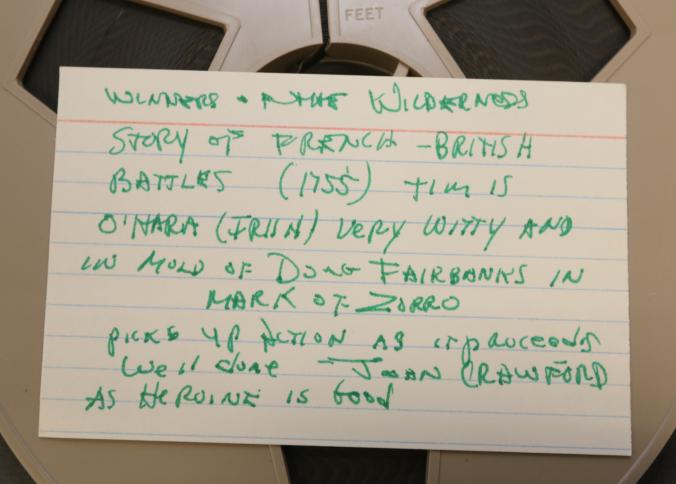 FEET
WINNERS • IN THE WILDERNESS
STORY OF FRENCH - BRITISH
BATTLES (1755) TIM IS
O'HARA (IRISH) VERY WITTY AND
IN MOLD OF DOUG FAIRBANKS IN
MARK OF ZORRO
PICKS UP ACTION AS IT PROCEEDS
Well done - JOAN CRAWFORD
AS HEROINE IS GOOD